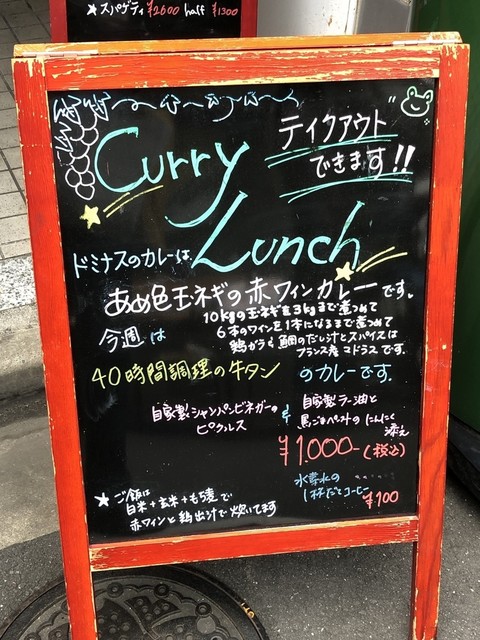 ★ スパゲティ ¥2600 half ¥1300
Curry
テイクアウト
できます!!
Lunch
ドミナスのカレーは、
あめ色玉ネギの赤ワインカレーです。
10kgの玉ネギを3kgまで煮つめて
今週は
6本のワインを1本になるまで煮つめて
鶏ガラ&鯛のだし汁とスパイスは
フランス産マドラスです。
40時間調理の牛タン のカレーです。
自家製シャンパンビネガーの
ピクルス
&
自家製ラー油と
黒ごまペーストのにんにく
添え
¥1.000-(税込)
水素水の
1杯だてコーヒー
¥100
★ ご飯は
白米+玄米+もち麦で
赤ワインと鶏出汁で炊いてます